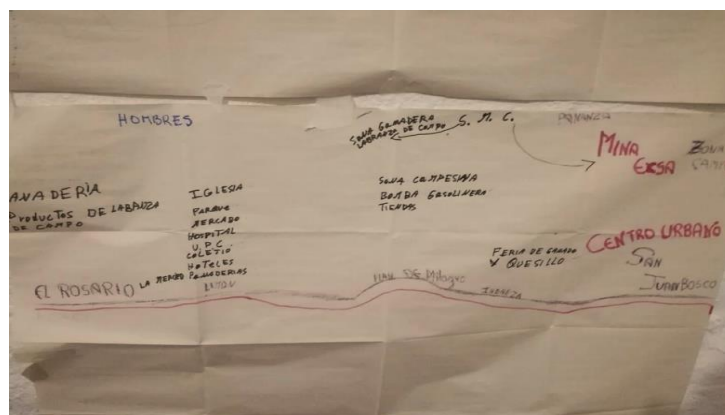 HOMBRES
SONA GANADERO
LABRANZA DE CAMPO
S. M. C.
MINA
EXSA
ZONA
ANADERIA
PRODUCTOS DE LABRANZA
DE CAMPO
IGLESIA
PARQUE
MERCADO
HOSPITAL
U.P.C.
HOTELES
PANADERIAS
SONA CAMPESINA
BOMBA GASOLINERO
TIENDAS
FERIA DE GANADO
Y QUESILLO
CENTRO URBANO
SAN
JUAN BOSCO
EL ROSARIO
PLAN DE MILAGRO
INDANZA